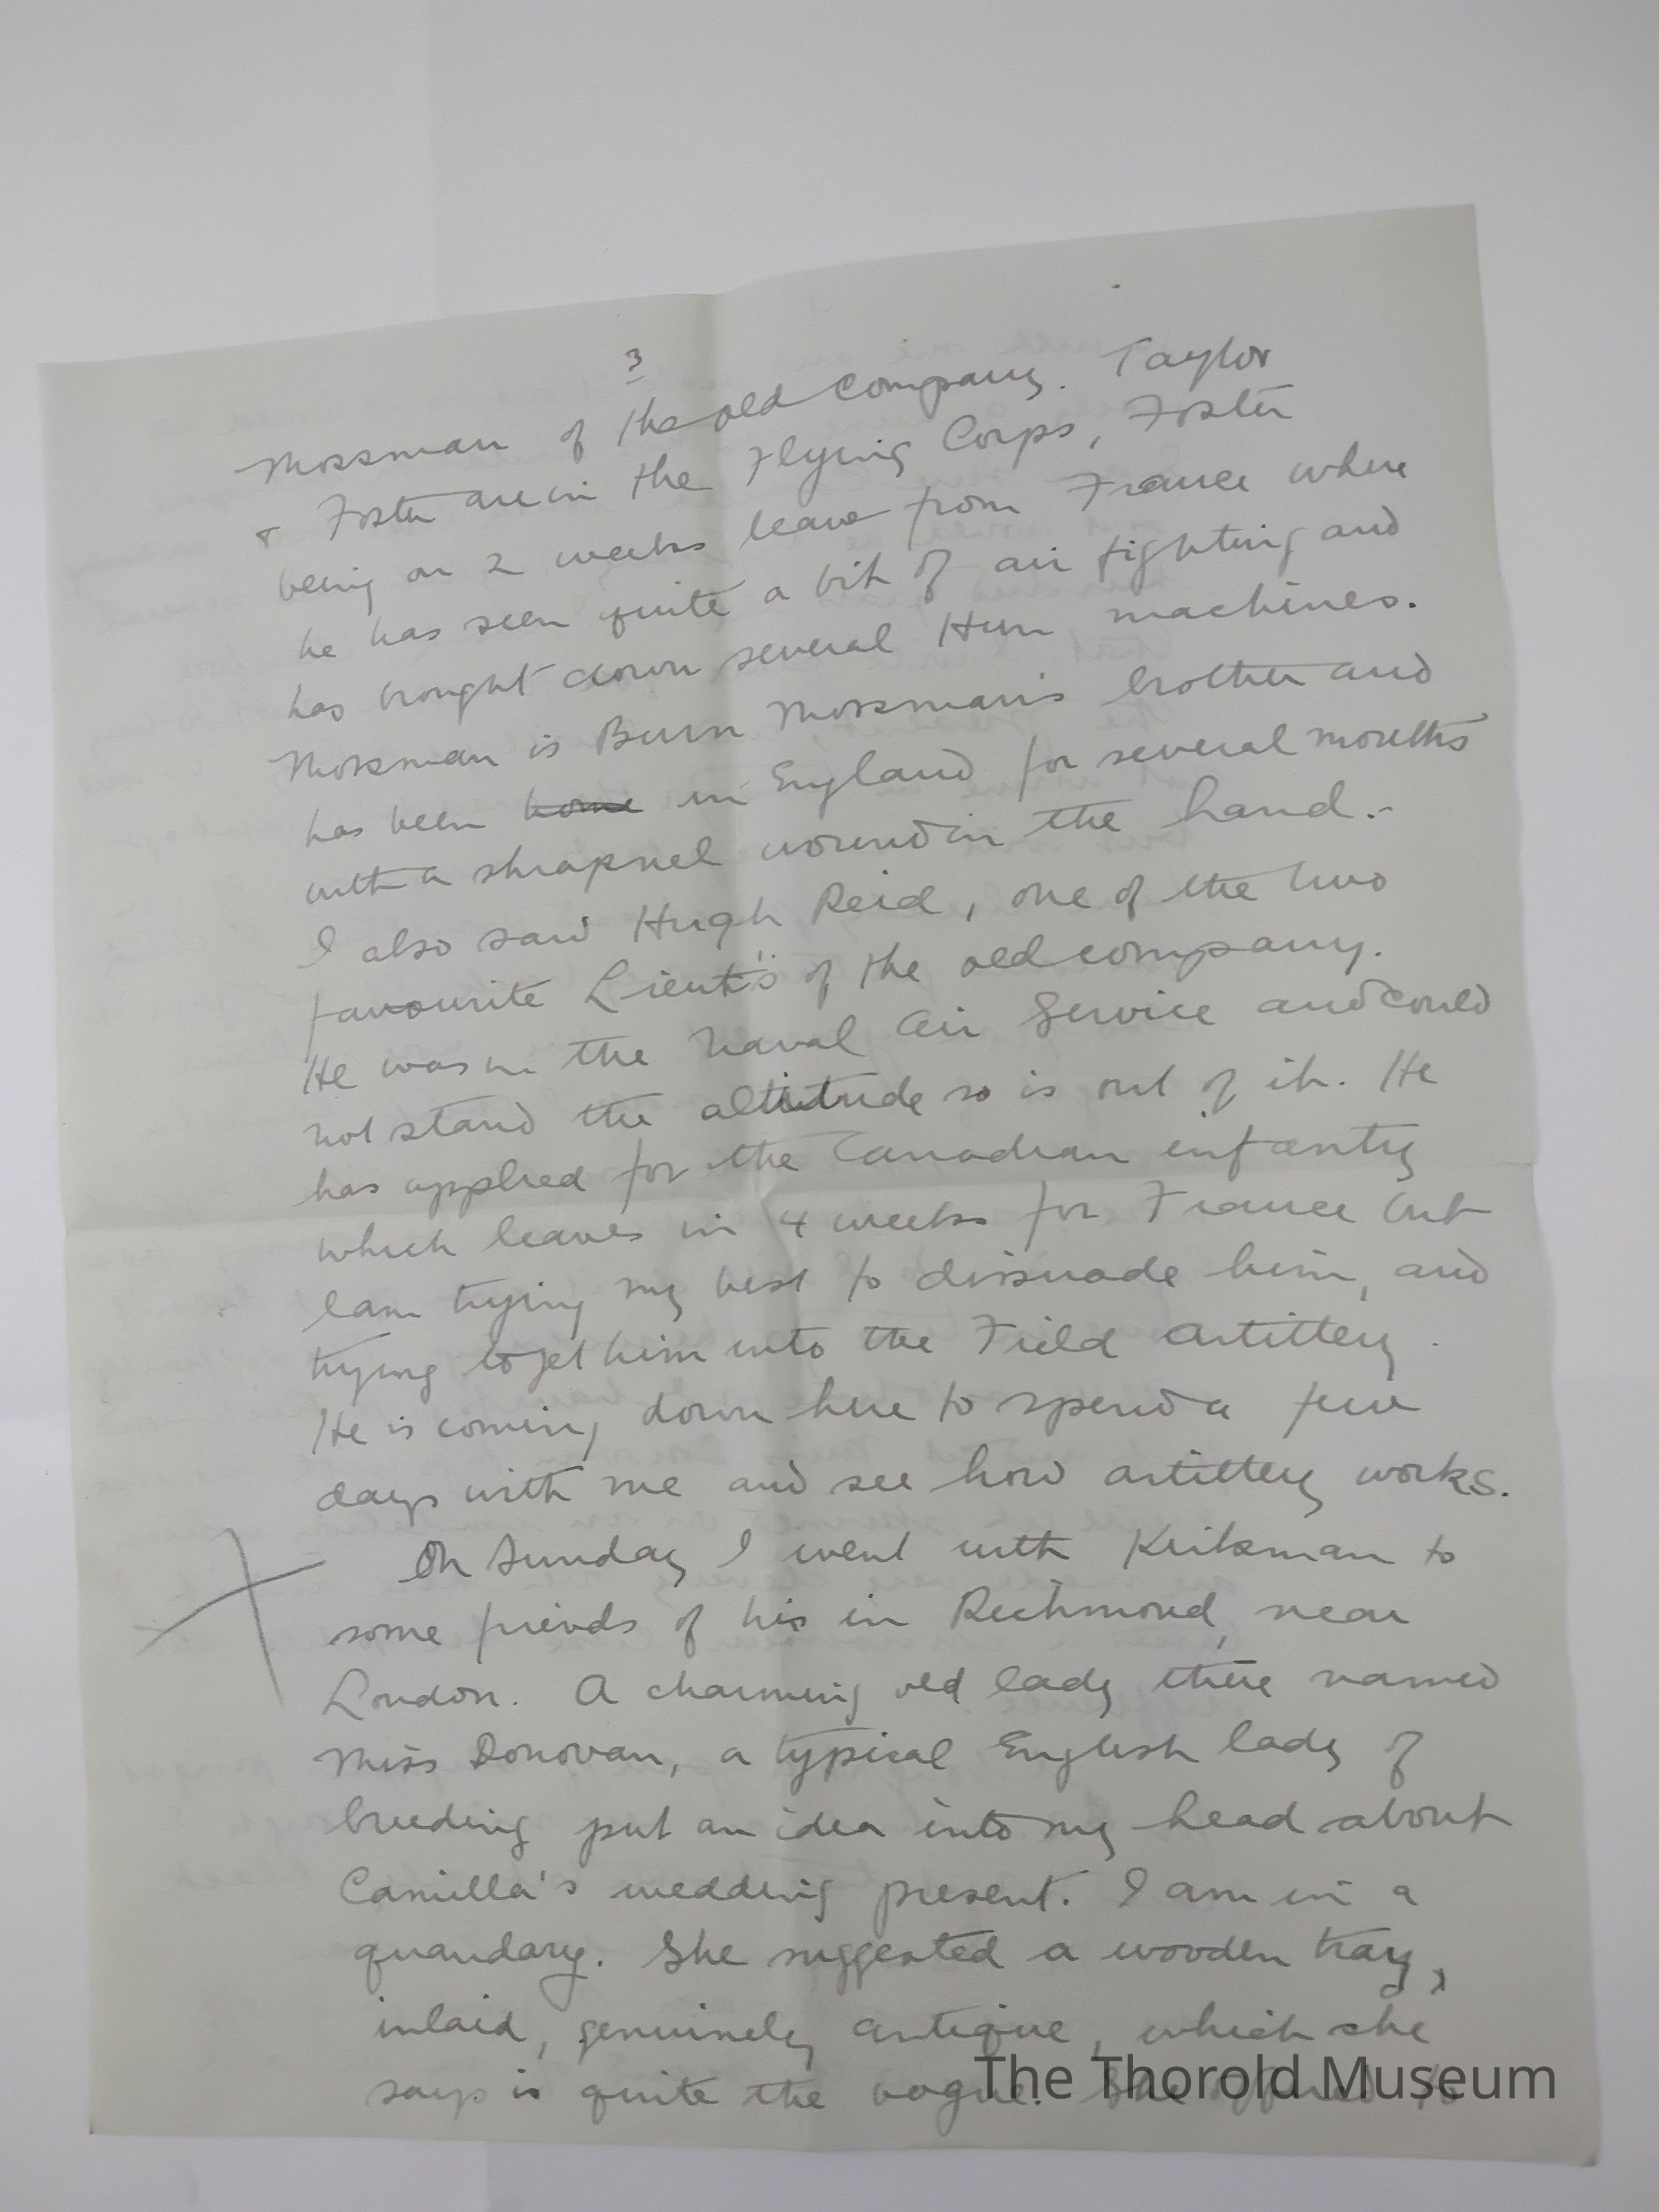 3
Mossman of the old company. Taylor
& Foster are in the Flying Corps, Foster
being on 2 weeks leave from France where
he has seen quite a bit of air fighting and
has brought down several Hun machines.
Mossman is Burn Mossman's brother and
has been home in England for several months
with a shrapnel wound in the hand.-
I also saw Hugh Reid, one of the two
favourite Lieut's of the old company.
He was in the Naval Air Service and could
not stand the altitude so is out of it. He
has applied for the Canadian infantry
which leaves in 4 weeks for France but
I am trying my best to dissuade him, and
trying to get him into the Field artillery.
He is coming down here to spend a few
days with me and see how artillery works.
On Sunday I went with Kriksman to
some friends of his in Richmond, near
London. A charming old lady there named
Miss Donovan, a typical English lady of
breeding put an idea into my head about
Camilla's wedding present. I am in a
quandary. She suggested a wooden tray,
inlaid, genuinely antique, which she
says is quite the vogue. She offered to
The Thorold Museum